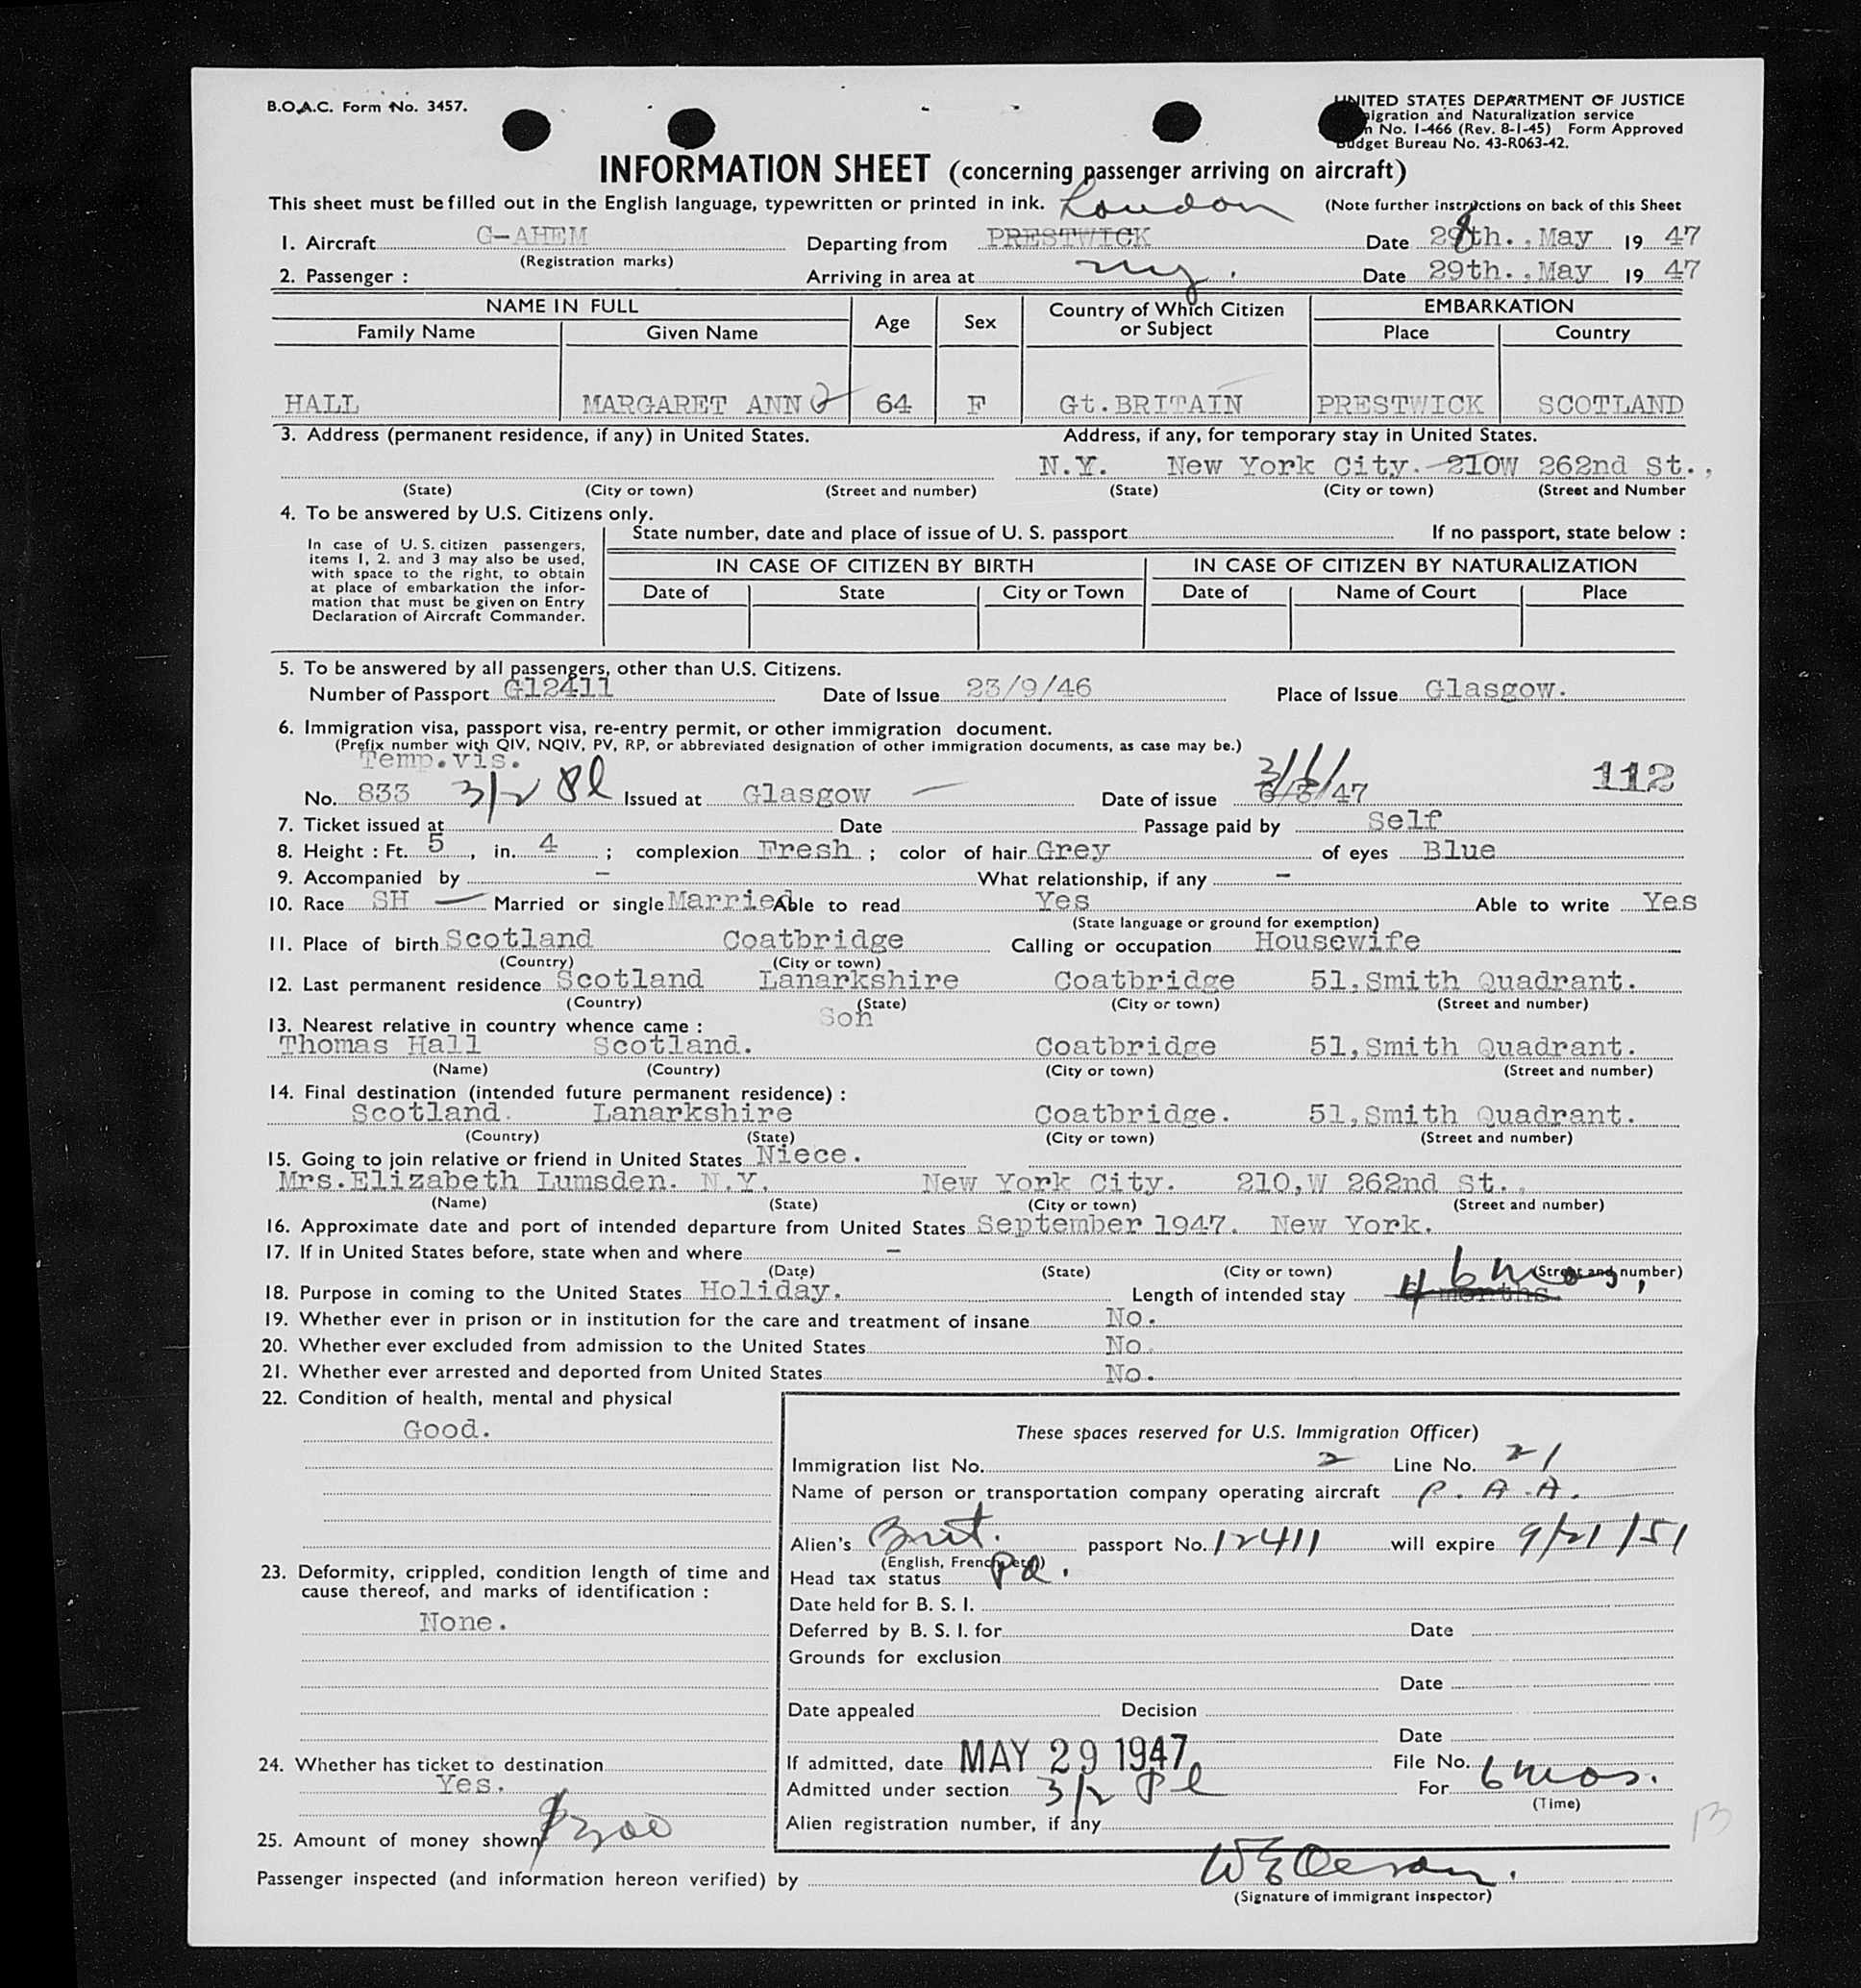 B.O.A.C. Form No. 3457.
UNITED STATES DEPARTMENT OF JUSTICE
igration and Naturalization service
No. I-466 (Rev. 8-1-45) Form Approved
Budget Bureau No. 43-R063-42.
INFORMATION SHEET (concerning passenger arriving on aircraft)
This sheet must be filled out in the English language, typewritten or printed in ink. London (Note further instructions on back of this Sheet
1. Aircraft G-AHEM Departing from PRESTWICK Date 28th., May 19 47
(Registration marks)
2. Passenger : Arriving in area at NY. Date 29th., May 19 47
NAME IN FULL Age Sex Country of Which Citizen or Subject EMBARKATION
Family Name Given Name Place Country
HALL MARGARET ANN 64 F Gt.BRITAIN PRESTWICK SCOTLAND
3. Address (permanent residence, if any) in United States. Address, if any, for temporary stay in United States.
N.Y. New York City. 210W 262nd St.,
(State) (City or town) (Street and number) (State) (City or town) (Street and Number
4. To be answered by U.S. Citizens only.
State number, date and place of issue of U. S. passport If no passport, state below :
In case of U. S. citizen passengers,
items 1, 2. and 3 may also be used,
with space to the right, to obtain
at place of embarkation the infor-
mation that must be given on Entry
Declaration of Aircraft Commander.
IN CASE OF CITIZEN BY BIRTH IN CASE OF CITIZEN BY NATURALIZATION
Date of State City or Town Date of Name of Court Place
5. To be answered by all passengers, other than U.S. Citizens.
Number of Passport G12411 Date of Issue 23/9/46 Place of Issue Glasgow.
6. Immigration visa, passport visa, re-entry permit, or other immigration document.
(Prefix number with QIV, NQIV, PV, RP, or abbreviated designation of other immigration documents, as case may be.)
Temp.vis.
No. 833 3/2 Pl Issued at Glasgow Date of issue /47 112
7. Ticket issued at Date Passage paid by Self
8. Height : Ft. 5, in. 4 ; complexion Fresh ; color of hair Grey of eyes Blue
9. Accompanied by - What relationship, if any -
10. Race SH Married or single Married Able to read Yes Able to write Yes
(State language or ground for exemption)
11. Place of birth Scotland Coatbridge Calling or occupation Housewife
(Country) (City or town)
12. Last permanent residence Scotland Lanarkshire Coatbridge 51,Smith Quadrant.
(Country) (State) (City or town) (Street and number)
13. Nearest relative in country whence came : Son
Thomas Hall Scotland. Coatbridge 51,Smith Quadrant.
(Name) (Country) (City or town) (Street and number)
14. Final destination (intended future permanent residence) :
Scotland. Lanarkshire Coatbridge. 51,Smith Quadrant.
(Country) (State) (City or town) (Street and number)
15. Going to join relative or friend in United States Niece.
Mrs.Elizabeth Lumsden. N.Y. New York City. 210,W 262nd St.
(Name) (State) (City or town) (Street and number)
16. Approximate date and port of intended departure from United States September 1947. New York.
17. If in United States before, state when and where -
(Date) (State) (City or town) (Street and number)
6 mos,
18. Purpose in coming to the United States Holiday. Length of intended stay 4 months.
19. Whether ever in prison or in institution for the care and treatment of insane No.
20. Whether ever excluded from admission to the United States No.
21. Whether ever arrested and deported from United States No.
22. Condition of health, mental and physical
Good.
These spaces reserved for U.S. Immigration Officer)
Immigration list No. 2 Line No. 21
Name of person or transportation company operating aircraft P.A.A.
Alien's Brit. passport No. 12411 will expire 9/21/51
(English, French, etc.)
Head tax status Pd.
Date held for B. S. I.
23. Deformity, crippled, condition length of time and
cause thereof, and marks of identification :
None.
Deferred by B. S. I. for Date
Grounds for exclusion
Date
Date appealed Decision
Date
24. Whether has ticket to destination
Yes.
If admitted, date MAY 29 1947 File No.
Admitted under section 3/2 Pl For 6 mos.
(Time)
Alien registration number, if any
25. Amount of money shown $200
13
Passenger inspected (and information hereon verified) by
(Signature of immigrant inspector)